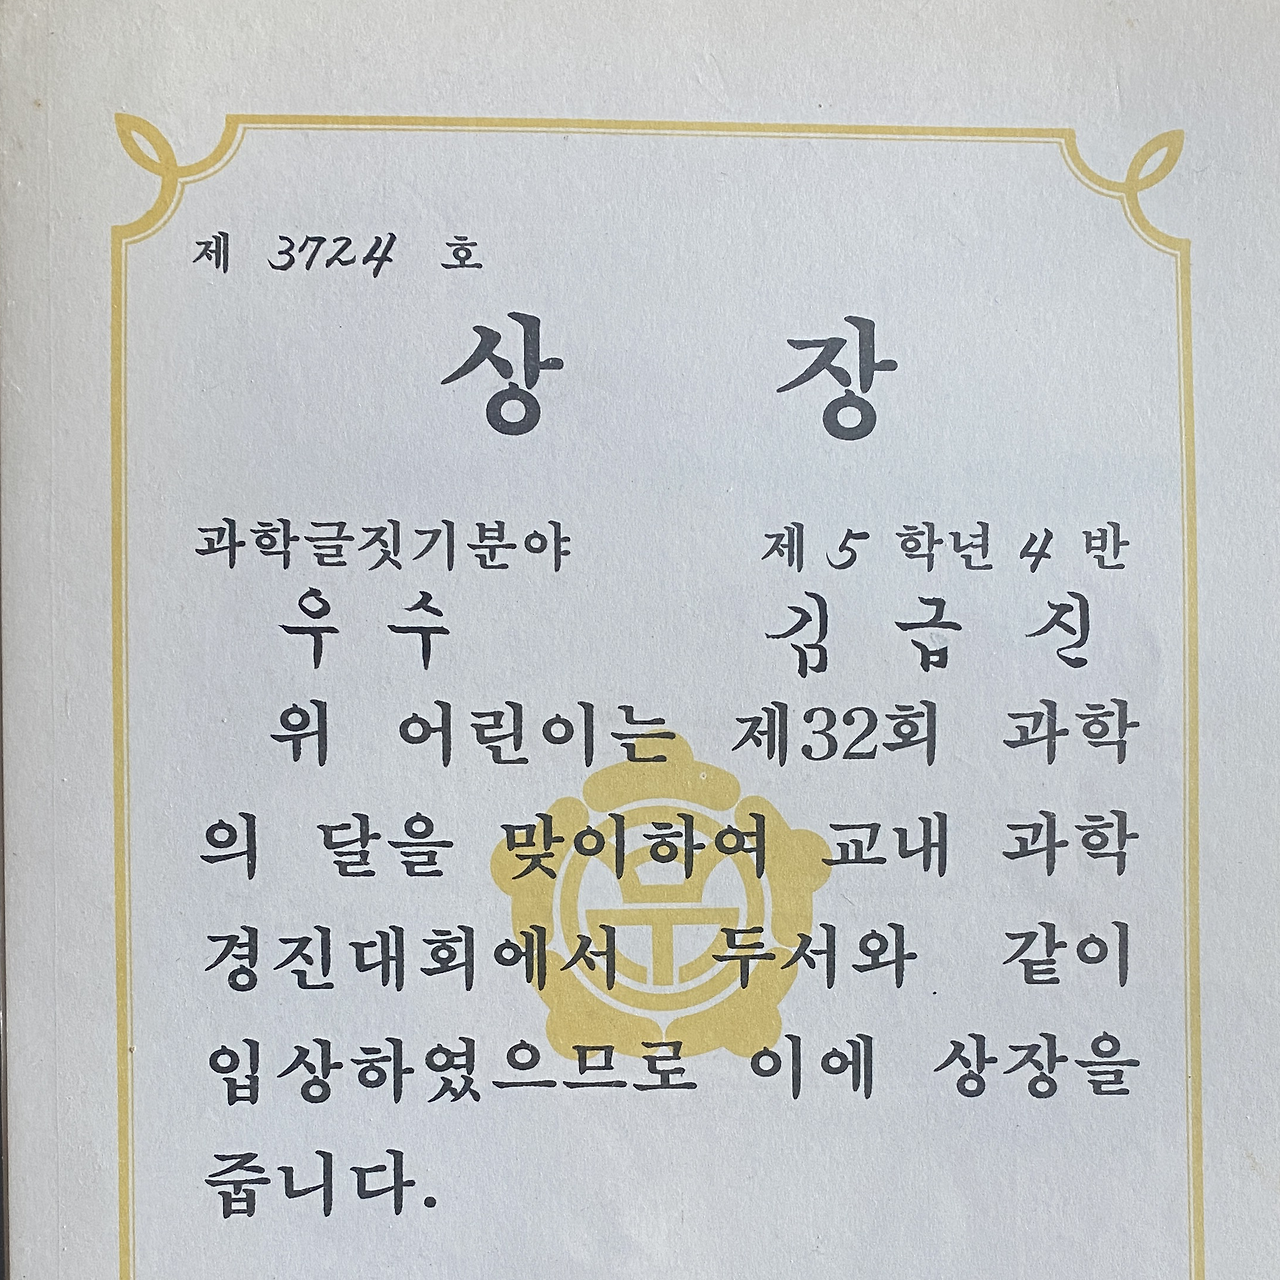 제 3724 호
상 장
과학글짓기분야 제 5 학년 4 반
우 수 김 급 진
위 어린이는 제32회 과학
의 달을 맞이하여 교내 과학
경진대회에서 두서와 같이
입상하였으므로 이에 상장을
줍니다.